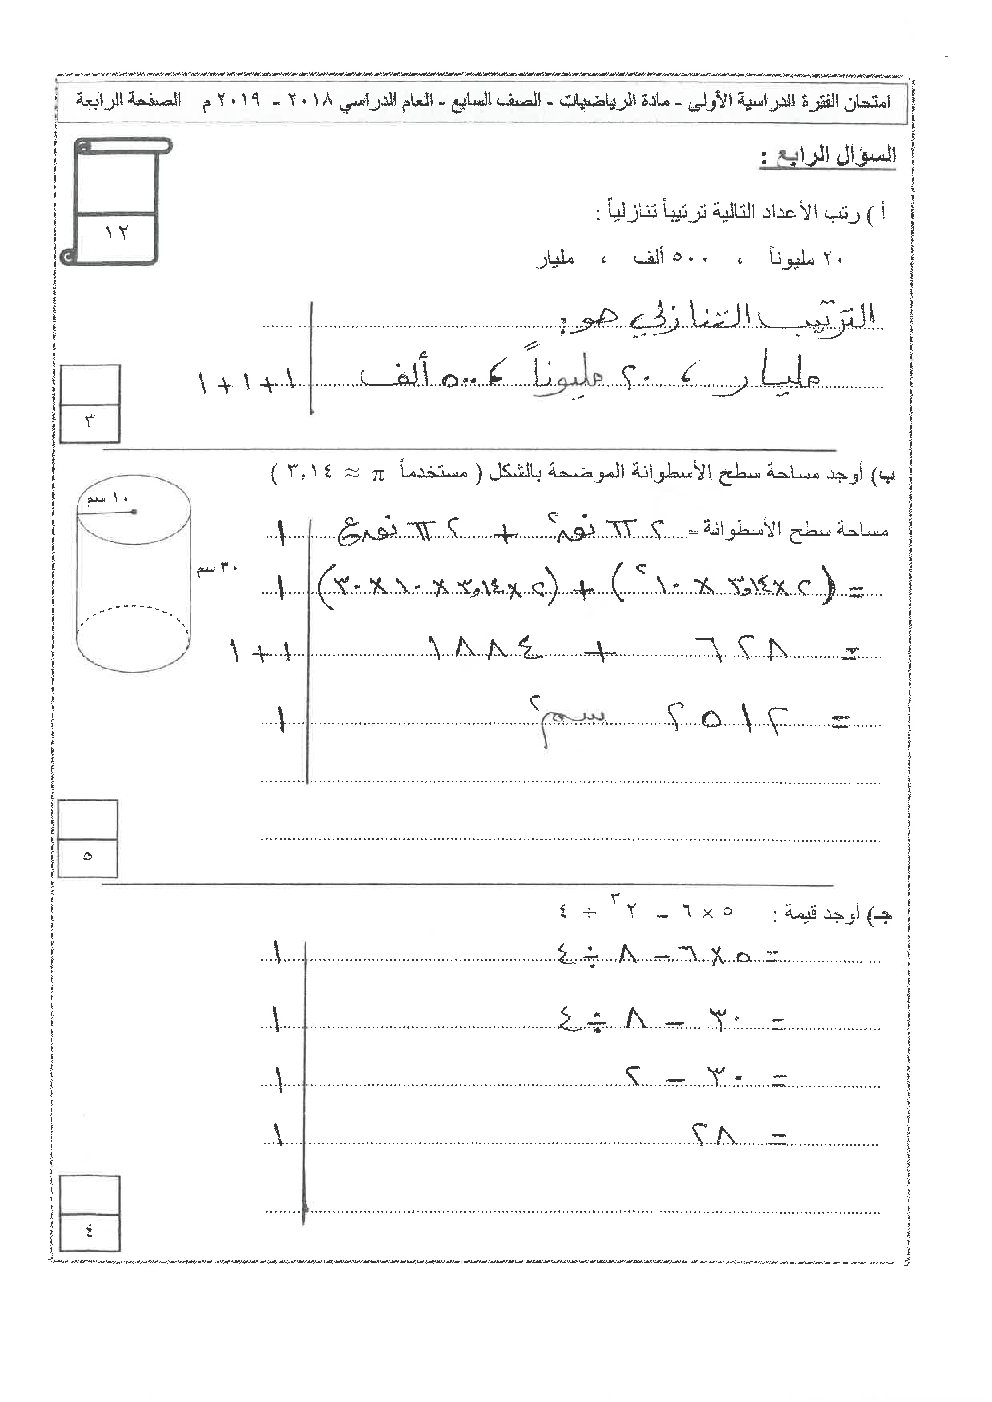 امتحان الفترة الدراسية الأولى – مادة الرياضيات – الصف السابع – العام الدراسي ٢٠١٨ – ٢٠١٩ م الصفحة الرابعة
السؤال الرابع :
١٢
أ ) رتب الأعداد التالية ترتيباً تنازلياً :
٢٠ مليوناً ، ٥٠٠ ألف ، مليار
الترتيب التنازلي هو :
مليار ، ٢٠ مليوناً ، ٥٠٠ ألف ١ + ١ + ١
٣
ب) أوجد مساحة سطح الأسطوانة الموضحة بالشكل ( مستخدماً π ≈ ٣,١٤ )
١٠ سم
٣٠ سم
مساحة سطح الأسطوانة = ٢ π نق² + ٢ π نق ع ١
= ( ٢ × ٣,١٤ × ١٠² ) + ( ٢ × ٣,١٤ × ١٠ × ٣٠ ) ١
= ٦٢٨ + ١٨٨٤ ١ + ١
= ٢٥١٢ سم² ١
٥
جـ) أوجد قيمة : ٥ × ٦ – ٢³ ÷ ٤
= ٥ × ٦ – ٨ ÷ ٤ ١
= ٣٠ – ٨ ÷ ٤ ١
= ٣٠ – ٢ ١
= ٢٨ ١
٤